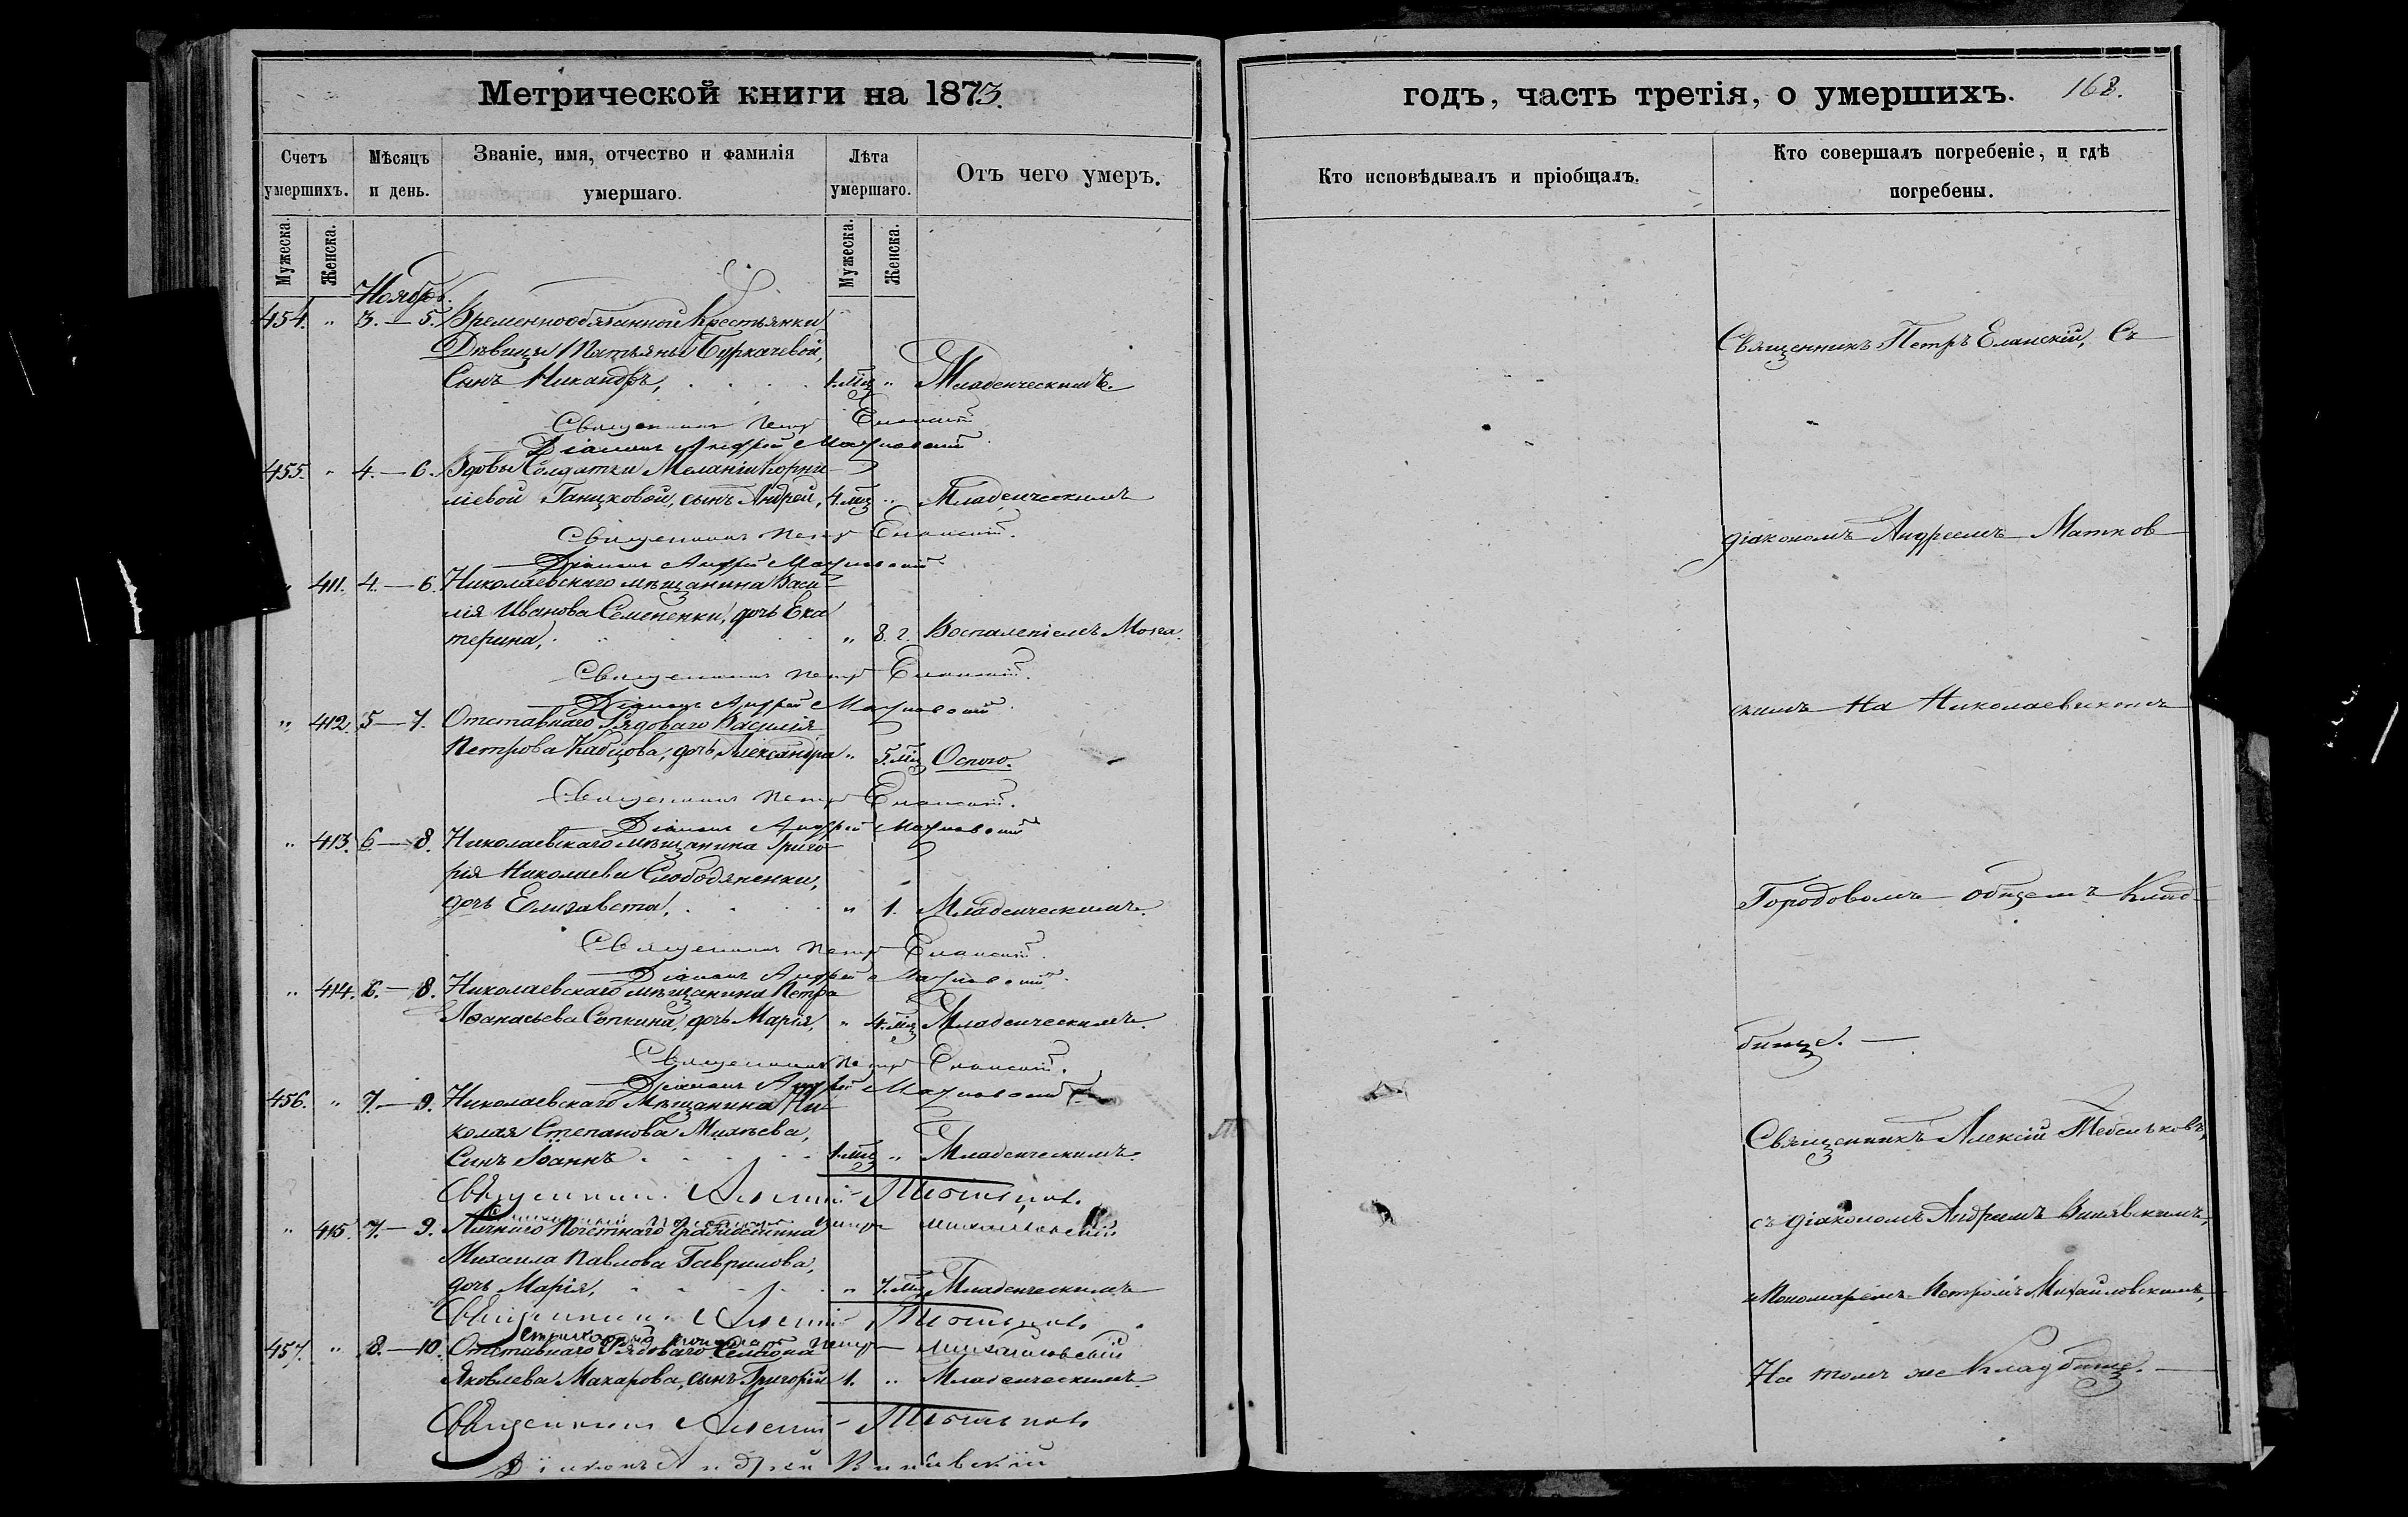 Метрической книги на 1873.
Счетъ умершихъ.
Мѣсяцъ и день.
Званіе, имя, отчество и фамилія умершаго.
Лѣта умершаго.
Отъ чего умеръ.
Мужеска.
Женска.
Мужеска.
Женска.
Ноябрь.
454. " 3. — 5. Временнообязанной Крестьянки
Дѣвицы Татьяны Буркачевой,
Сынъ Никандръ, 1. мѣс " Младенческимъ.
Священникъ Петръ Еланскій
Діаконъ Андрей Матковскій
455. " 4. — 6. Вдовы Солдатки Меланіи Корни
ліевой Ганцковой, сынъ Андрей, 4. мѣс " Младенческимъ
Священникъ Петръ Еланскій.
Діаконъ Андрей Матковскій
" 411. 4. — 6. Николаевскаго мѣщанина Васи
лія Иванова Семененки, дочь Ека
терина, " 8. г. Воспаленіемъ Мозга.
Священникъ Петръ Еланскій.
Діаконъ Андрей Матковскій
" 412. 5 — 7. Отставнаго Рядоваго Василія
Петрова Кабцова, дочь Александра " 5. мѣс Оспою.
Священникъ Петръ Еланскій.
Діаконъ Андрей Матковскій
" 413. 6 — 8. Николаевскаго мѣщанина Григо
рія Николаева Слободяненки,
дочь Елизавета, " 1. Младенческимъ.
Священникъ Петръ Еланскій.
Діаконъ Андрей Матковскій
" 414. 6. — 8. Николаевскаго мѣщанина Петра
Аѳанасьева Сопкина, дочь Марія, " 4. мѣс Младенческимъ.
Священникъ Петръ Еланскій.
Діаконъ Андрей Матковскій
456. " 7. — 9. Николаевскаго Мѣщанина Ни
колая Степанова
Сынъ Іоаннъ 1. мѣс " Младенческимъ.
Священникъ Алексій
" 415. 7. — 9. Личнаго Почетнаго Гражданина
Петръ Михайловскій
Михаила Павлова Гаврилова,
дочь Марія, " 7. мѣс Младенческимъ
Священникъ Алексій
Петръ Михайловскій
457. " 8. — 10. Отставнаго Рядоваго Семіона
Яковлева Макарова, сынъ Григорій 1. " Младенческимъ.
Священникъ Алексій
Діаконъ Андрей Винявскій
годъ, часть третія, о умершихъ. 168.
Кто исповѣдывалъ и пріобщалъ.
Кто совершалъ погребеніе, и гдѣ погребены.
Священникъ Петръ Еланскій, Съ
діакономъ Андреемъ Матков
скимъ На Николаевскомъ
Городовомъ общемъ Клад
бище. —
Священникъ Алексій
съ діакономъ Андреемъ Винявскимъ,
и Пономаремъ Петромъ Михайловскимъ,
На томъ же Кладбище. —